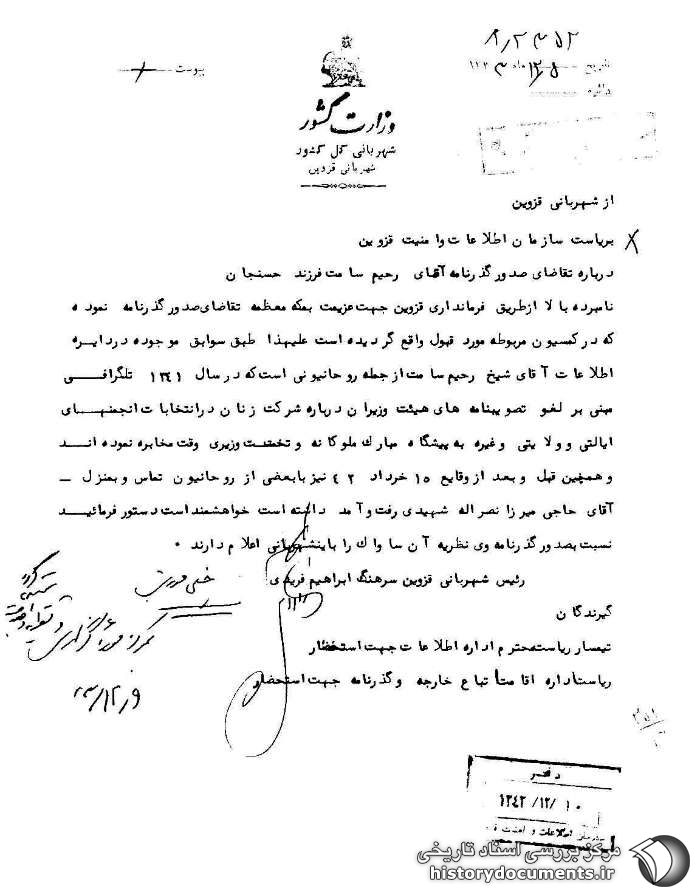 ۸/۲۳۵۲
تاریخ ۱۲/۵ ماه ۱۳۴
دائره
پیوست
وزارت کشور
شهربانی کل کشور
شهربانی قزوین
از شهربانی قزوین
بریاست سازمان اطلاعات وامنیت قزوین
درباره تقاضای صدور گذرنامه آقای رحیم سامت فرزند حسنجان
نامبرده بالا ازطریق فرمانداری قزوین جهت عزیمت بمکه معظمه تقاضای صدور گذرنامه نموده
که در کمسیون مربوطه مورد قبول واقع گردیده است علیهذا طبق سوابق موجوده در دایره
اطلاعات آقای شیخ رحیم سامت از جمله روحانیونی است که در سال ۱۳۴۱ تلگرافی
مبنی بر لغو تصویبنامه های هیئت وزیران درباره شرکت زنان در انتخابات انجمنهای
ایالتی و ولایتی وغیره به پیشگاه مبارک ملوکانه و نخست وزیری وقت مخابره نموده اند
و همچنین قبل و بعد از وقایع ۱۵ خرداد ۴۲ نیز با بعضی از روحانیون تماس و بمنزل ــ
آقای حاجی میرزا نصراله شهیدی رفت و آمد داشته است خواهشمند است دستور فرمائید
نسبت بصدور گذرنامه وی نظریه آن ساواک را باینشهربانی اعلام دارند ۰
رئیس شهربانی قزوین سرهنگ ابراهیم فریدی
گیرندگان
تیمسار ریاست محترم اداره اطلاعات جهت استحضار
ریاست اداره اقامت اتباع خارجه و گذرنامه جهت استحضار
دفتر
۱۳۴۲/۱۲/۱۰
اطلاعات و امنیت
مرکز بررسی اسناد تاریخی
historydocuments.ir